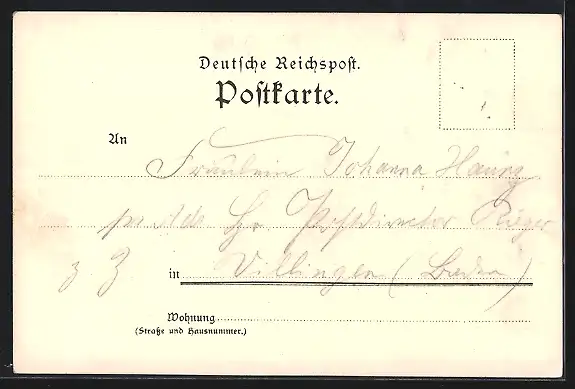 Deutsche Reichspost.
Postkarte.
An
Fräulein Johanna Haung
Hr. Postdirector Rüger
z. Z. in Villingen (Baden)
Wohnung
(Straße und Hausnummer.)